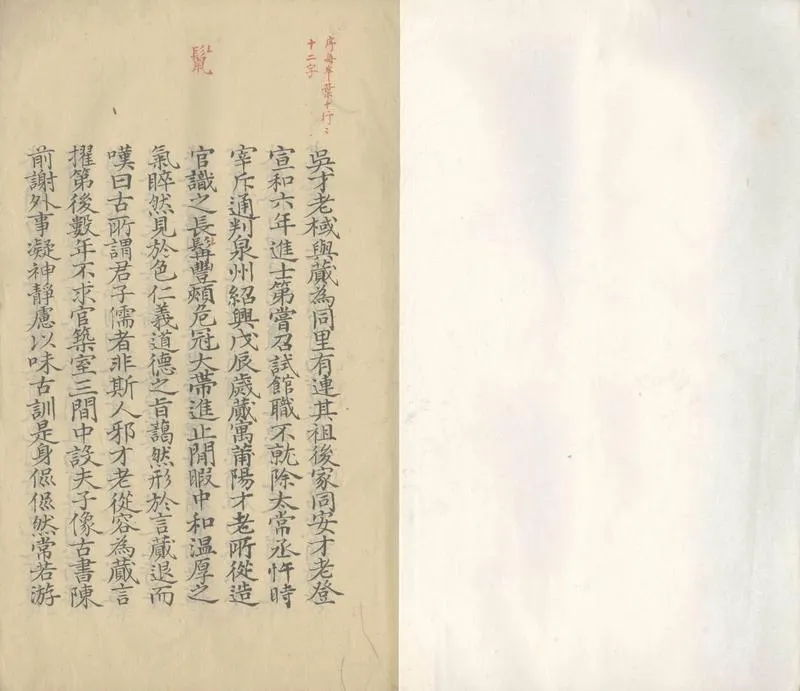 序每半葉十行二
十二字
鬣
吳才老棫與蕆為同里有連其祖後家同安才老登
宣和六年進士第嘗召試館職不就除太常丞忤時
宰斥通判泉州紹興戊辰歲蕆寓莆陽才老所從造
官識之長鬣豐頰危冠大帶進止閒暇中和溫厚之
氣睟然見於色仁義道德之旨藹然形於言蕆退而
嘆曰古所謂君子儒者非斯人邪才老從容為蕆言
擢第後數年不求官築室三間中設夫子像古書陳
前謝外事凝神靜慮以味古訓是身儽儽然常若游